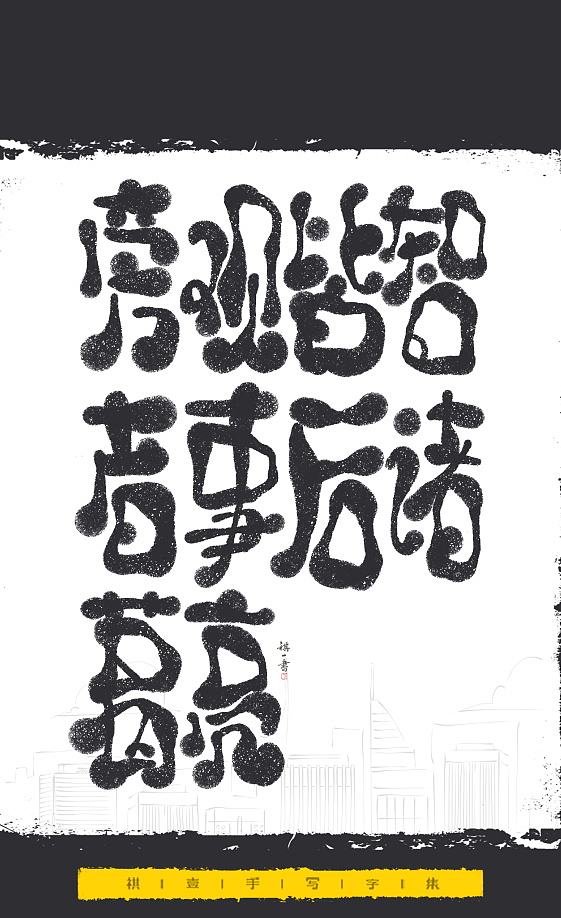 旁观皆智
者事后诸
葛亮
祺一書
祺 | 壹 | 手 | 写 | 字 | 集